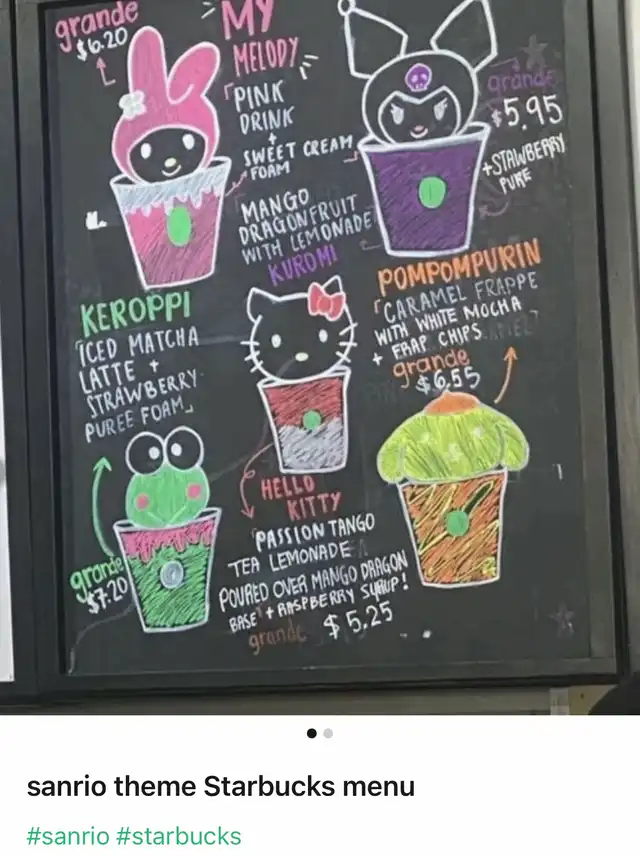 grande
$6.20
MY
MELODY
PINK
DRINK
+
SWEET CREAM
FOAM
grande
$5.95
+STAWBERRY
PURE
MANGO
DRAGONFRUIT
WITH LEMONADE
KUROMI
KEROPPI
ICED MATCHA
LATTE +
STRAWBERRY
PUREE FOAM
grande
$7.20
POMPOMPURIN
CARAMEL FRAPPE
WITH WHITE MOCHA
+ FRAP CHIPS
grande
$6.55
HELLO
KITTY
PASSION TANGO
TEA LEMONADE
POURED OVER MANGO DRAGON
BASE + RASPBERRY SYRUP!
grande $5.25
sanrio theme Starbucks menu
#sanrio #starbucks